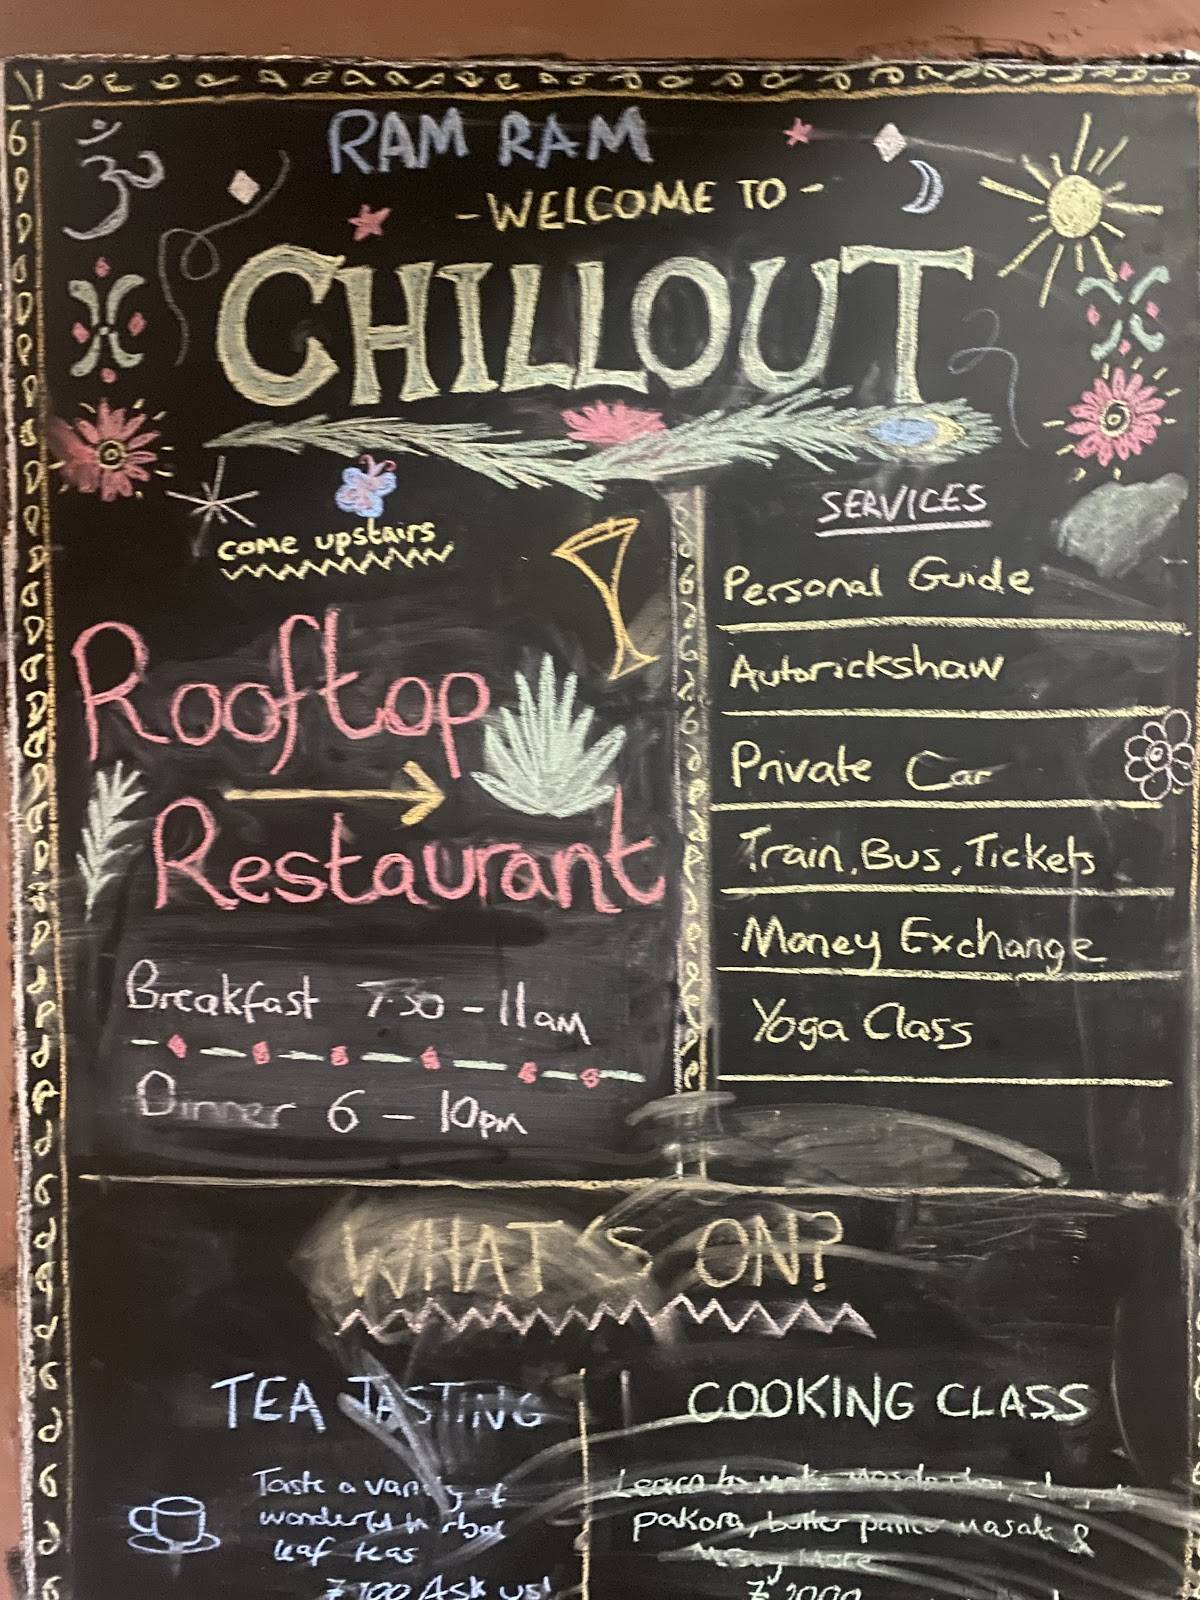 ॐ
RAM RAM
- WELCOME TO -
CHILLOUT
come upstairs
Rooftop
Restaurant
Breakfast 7.30 - 11am
Dinner 6 - 10pm
SERVICES
Personal Guide
Autorickshaw
Private Car
Train, Bus, Tickets
Money Exchange
Yoga Class
WHAT'S ON?
TEA TASTING
Taste a variety of
wonderful herbal
leaf teas
₹100 Ask us!
COOKING CLASS
Learn to make Masala
pakora, butter paneer masala &
Many More
₹ 2000